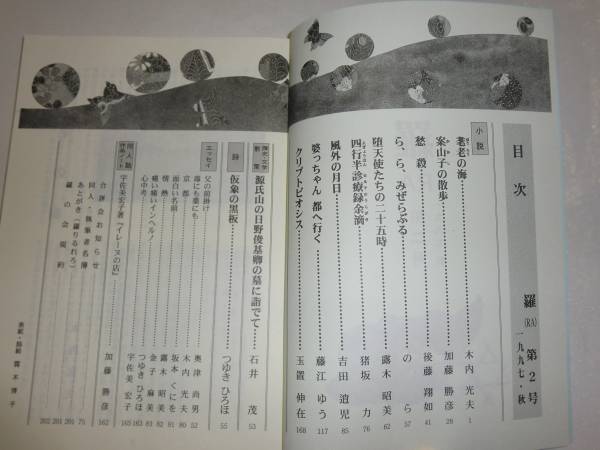 目次
羅 第2号
(RA)
一九九七・秋
小説
耄老の海 木内 光夫 1
案山子の散歩 加藤 勝彦 28
愁殺 後藤 翔如 41
ら、ら、みぜらぶる のら 62
堕天使たちの二十五時 露木 昭美 76
四行半診療録余滴 猪坂 力 62
風外の月日 吉田 遉児 85
婆っちゃん 都へ行く 藤江 ゆう 117
クリプトビオシス 玉置 伸在 168
源氏山の日野俊基卿の墓に詣でて 石井 茂 53
詩
仮象の黒板 つゆき ひろほ 55
エッセイ
父の前掛け 奥津 尚男
毒にも薬にも 木内 光夫
京都 坂本 くにを
面白い名前 露木 昭美
情熱 金子 麻美
痛い痛いインヘルノ つゆき ひろほ
心中考 宇佐美 宏子
同人論
宇佐美宏子著『イレーヌの店』 加藤 勝彦 162
合評会お知らせ 75
同人・執筆者名簿
あとがき(羅りるれろ)
羅の会規約
表紙・扉絵 露木 博子